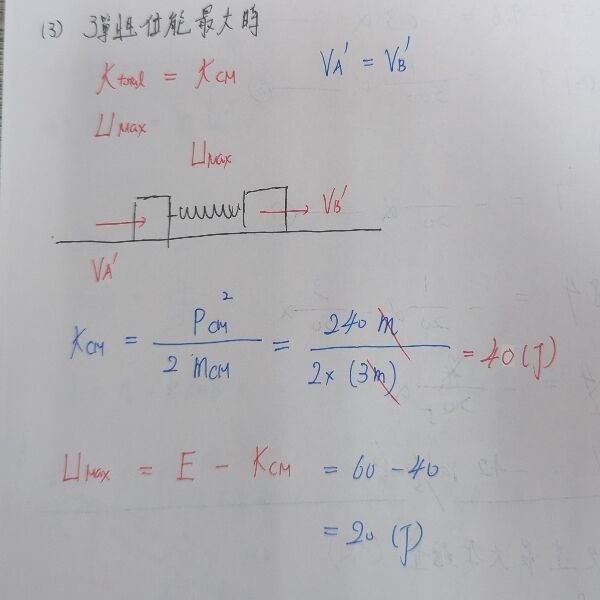 (3) 彈性位能最大時
K total = K CM    V_A' = V_B'
U Max
U Max
V_B'
V_A'
K_CM = P_CM² / 2 m_CM = 240 m / 2x (3m) = 40 (J)
U Max = E - K_CM = 60 - 40
= 20 (J)